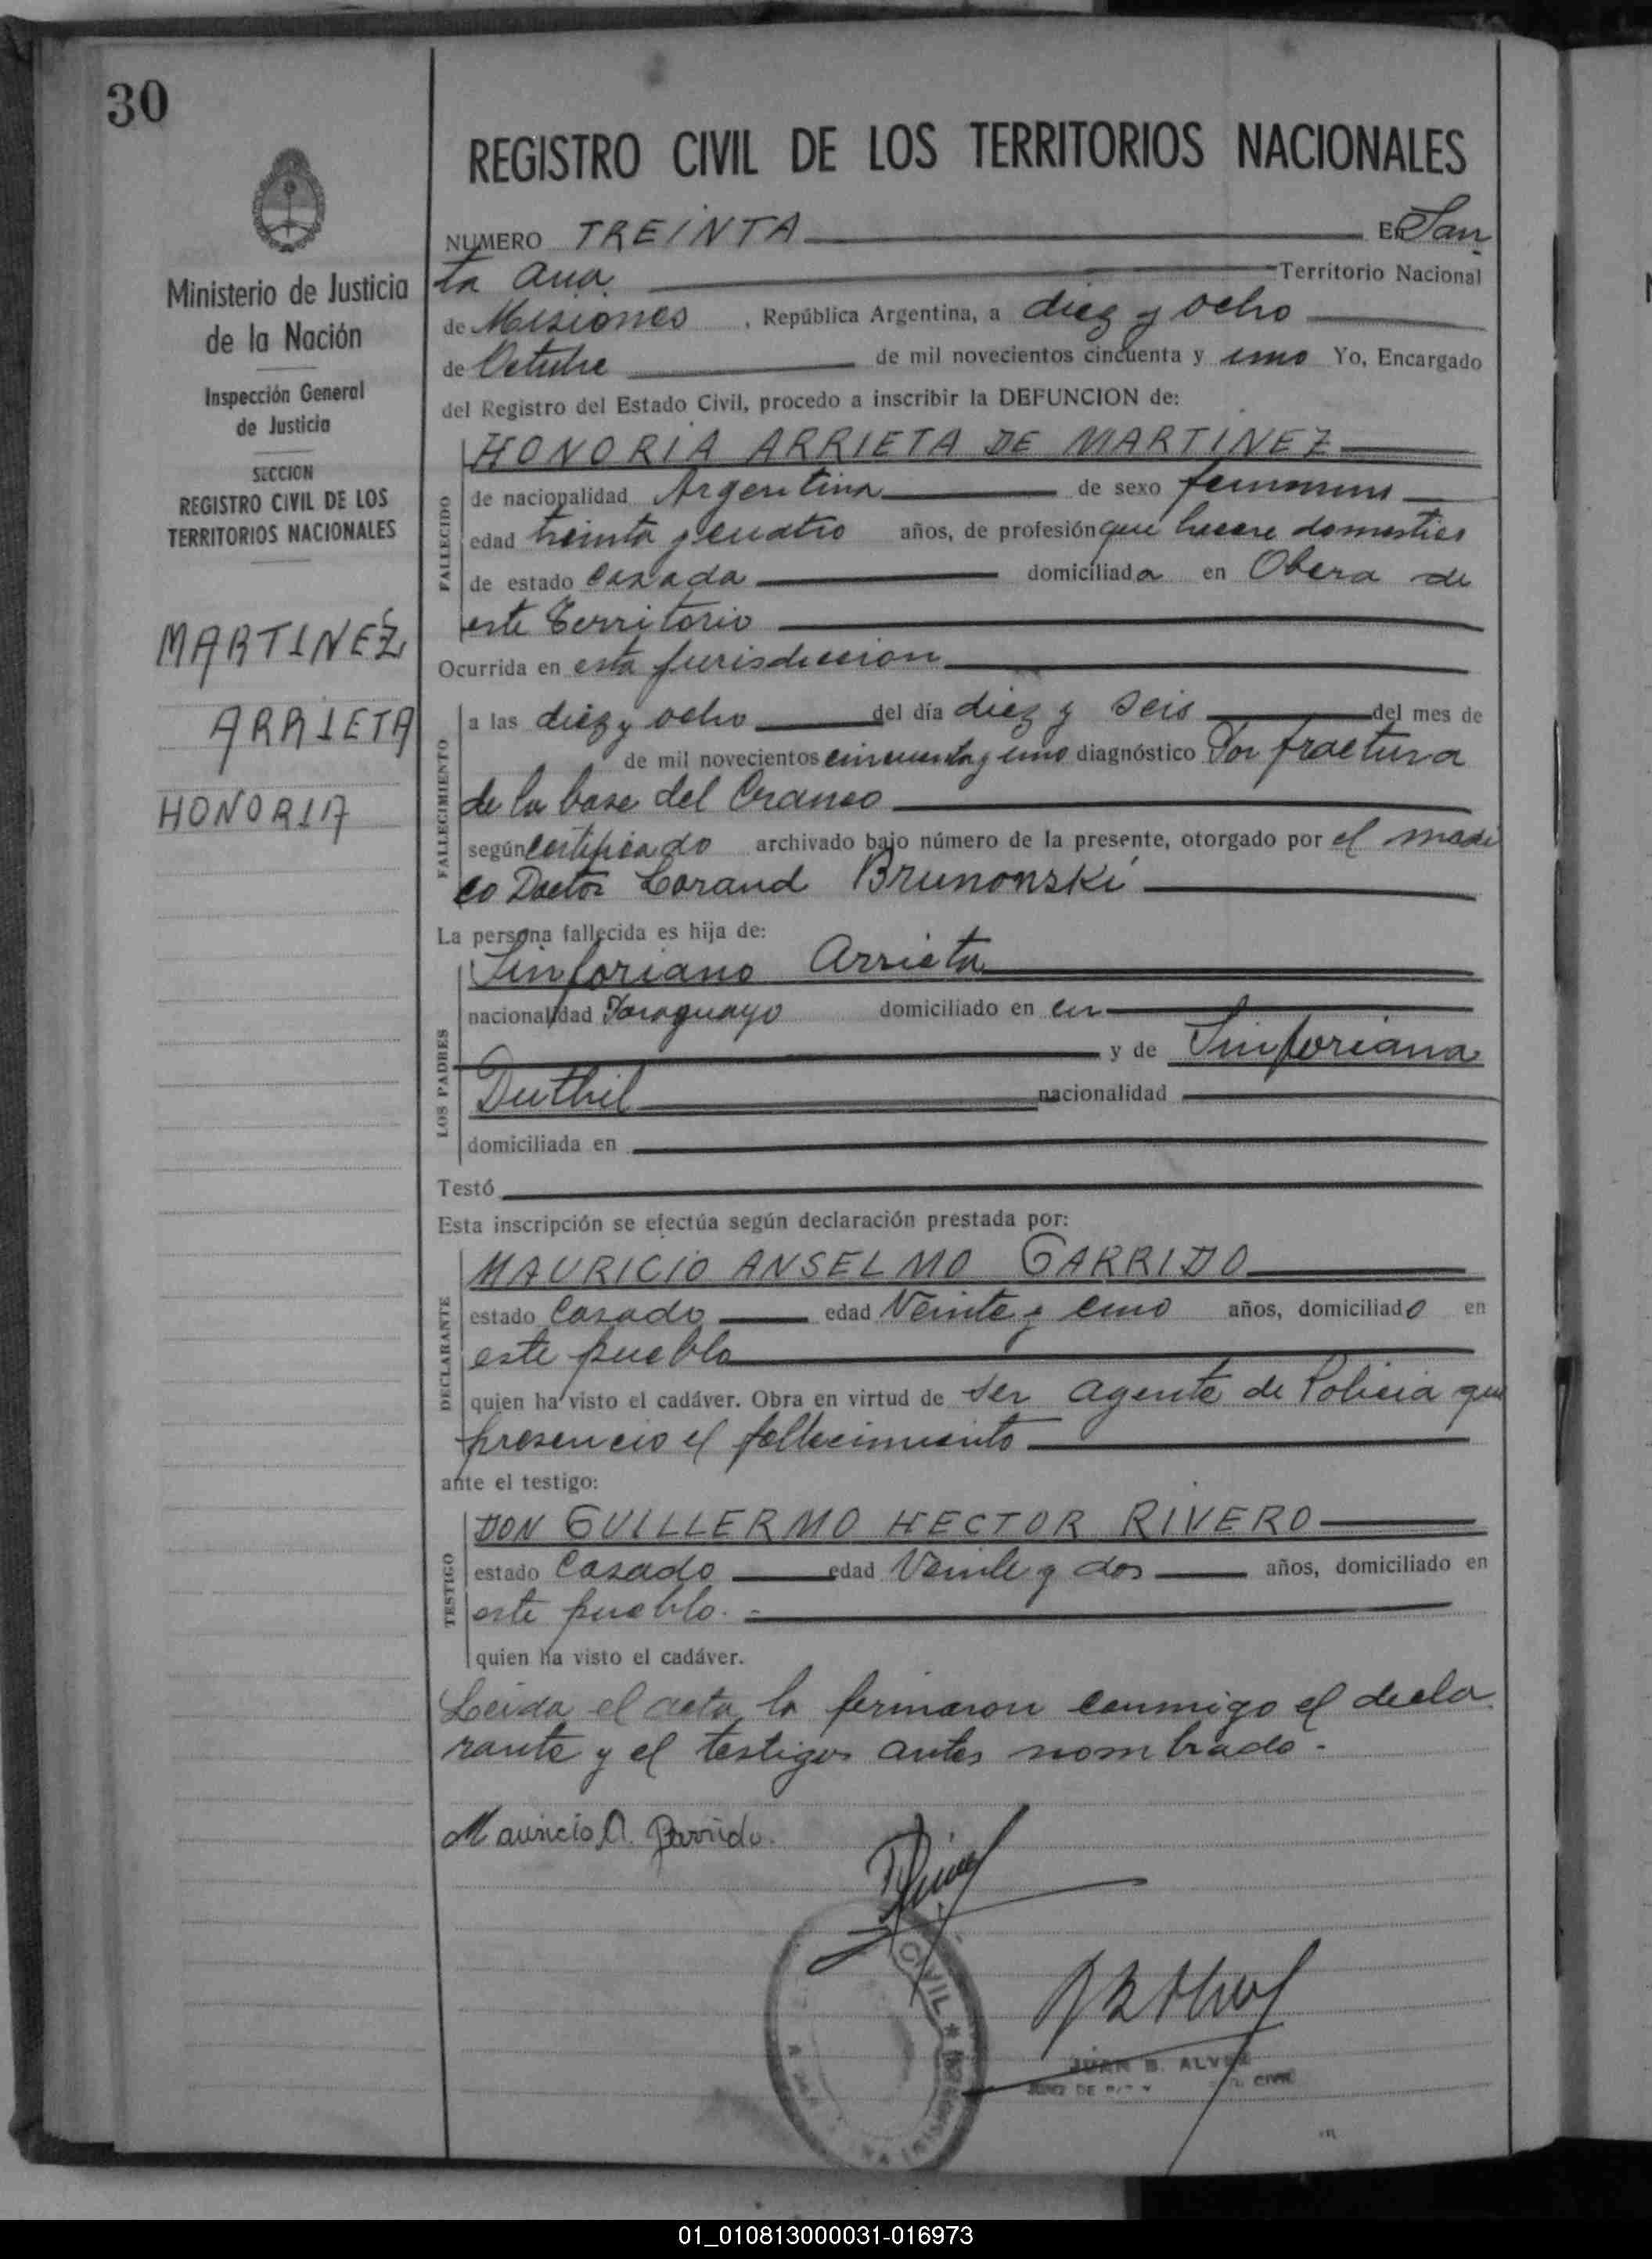 30
REGISTRO CIVIL DE LOS TERRITORIOS NACIONALES
Ministerio de Justicia
de la Nación
Inspección General
de Justicia
SECCION
REGISTRO CIVIL DE LOS
TERRITORIOS NACIONALES
MARTINEZ
ARRIETA
HONORIA
NUMERO TREINTA En San
ta Ana Territorio Nacional
de Misiones, República Argentina, a diez y ocho
de Octubre de mil novecientos cincuenta y uno Yo, Encargado
del Registro del Estado Civil, procedo a inscribir la DEFUNCION de:
FALLECIDO
HONORIA ARRIETA DE MARTINEZ
de nacionalidad Argentina de sexo femenino
edad treinta y cuatro años, de profesión que hacere domestico
de estado casada domiciliada en Obera de
este Territorio
Ocurrida en esta Jurisdiccion
FALLECIMIENTO
a las diez y ocho del día diez y seis del mes de
de mil novecientos cincuenta y uno diagnóstico Por fractura
de la base del Craneo
según certificado archivado bajo número de la presente, otorgado por el medi
co Doctor Corand Brunonski
La persona fallecida es hija de:
LOS PADRES
Sinforiano Arrieta
nacionalidad Paraguayo domiciliado en en
y de Sinforiana
Duthil nacionalidad
domiciliada en
Testó
Esta inscripción se efectúa según declaración prestada por:
DECLARANTE
MAURICIO ANSELMO GARRIDO
estado Casado edad Veinte y uno años, domiciliado en
este pueblo
quien ha visto el cadáver. Obra en virtud de ser agente de Policia que
presencio el fallecimiento
ante el testigo:
TESTIGO
DON GUILLERMO HECTOR RIVERO
estado Casado edad Veinte y dos años, domiciliado en
este pueblo.-
quien ha visto el cadáver.
Leida el acta la firmaron conmigo el decla
rante y el testigos antes nombrado.-
Mauricio A. Garrido.
CIVIL
JUAN B. ALVEZ
JUEZ DE PAZ Y CIVIL
01_010813000031-016973